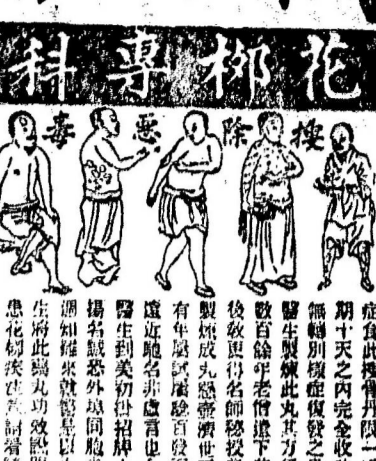 花柳專科
搜除惡毒
症食此搜骨丹限
期十天之內完全收
無轉別樣症復發之
醫生製煉此丸其方
數百餘年老僧遺下
後敎更得名師秘授
製煉成丸懸壺濟世
有年屢試屢驗百發
遠近馳名非虛言也
醫生到美初掛招牌
揚名誠恐外埠同胞
週知難來就診是以
生將此藥丸功效說
患花柳疾者請看